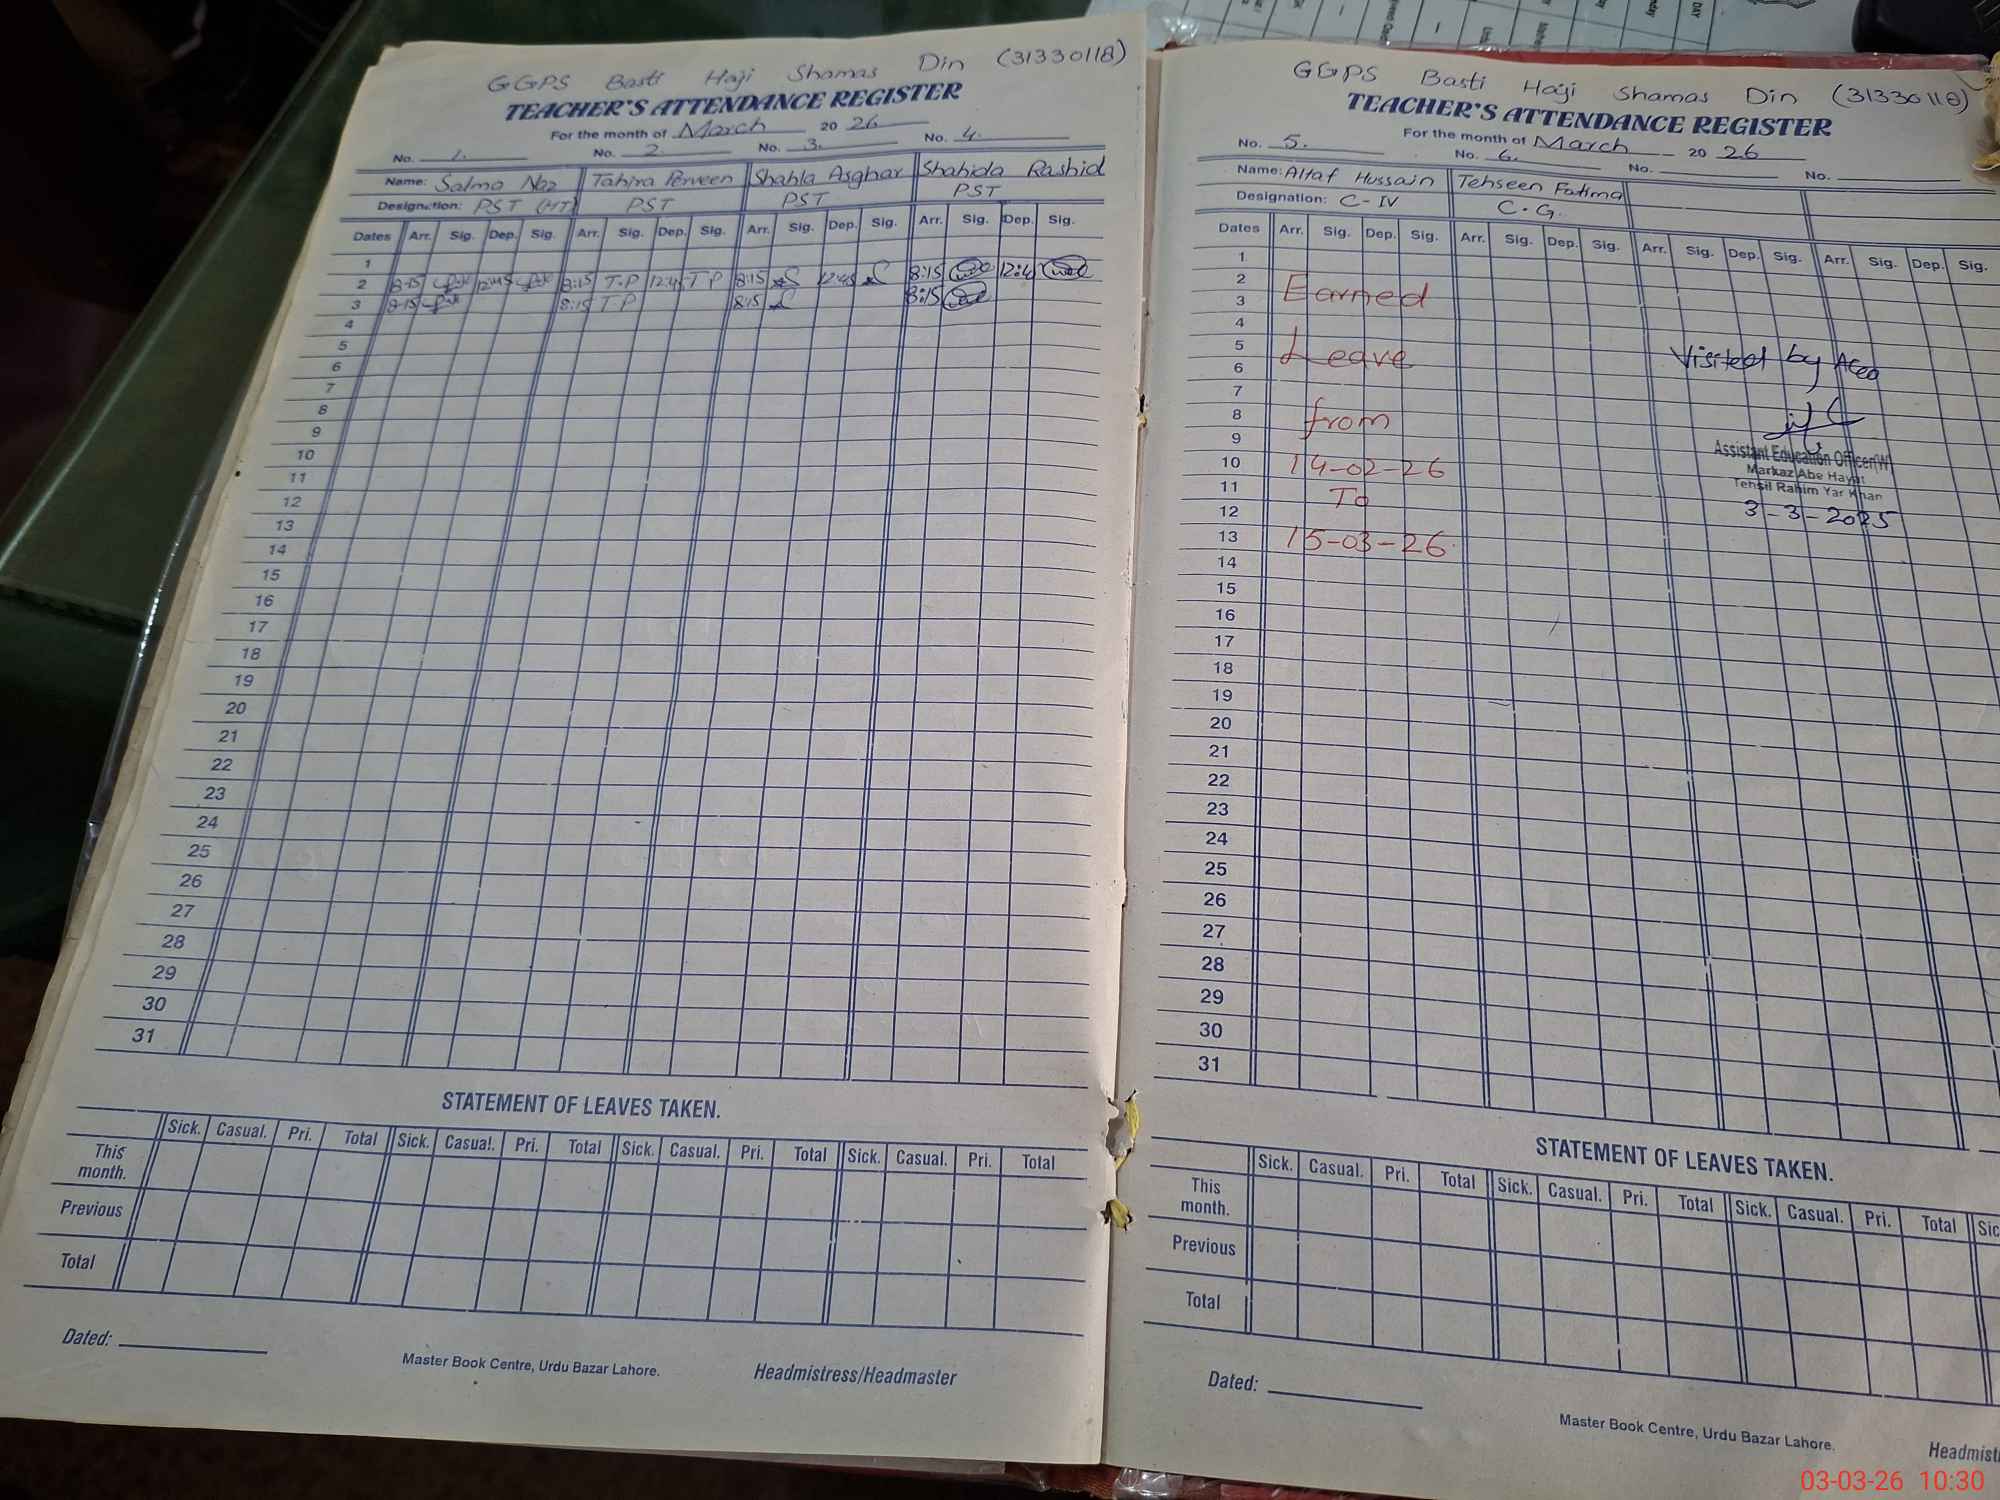 GGPS Basti Haji Shamas Din (31330118)
TEACHER'S ATTENDANCE REGISTER
For the month of March 20 26
No. 1. No. 2. No. 3. No. 4.
Name: Salma Naz Tahira Perveen Shahla Asghar Shahida Rashid
Designation: PST (HT) PST PST PST
Dates Arr. Sig. Dep. Sig. Arr. Sig. Dep. Sig. Arr. Sig. Dep. Sig. Arr. Sig. Dep. Sig.
1
2 8:15 12:45 8:15 T.P 12:45 T P 8:15 12:45 8:15 12:4
3 8:15 8:15 T P 8:15 8:15
4
5
6
7
8
9
10
11
12
13
14
15
16
17
18
19
20
21
22
23
24
25
26
27
28
29
30
31
STATEMENT OF LEAVES TAKEN.
Sick. Casual. Pri. Total Sick. Casual. Pri. Total Sick. Casual. Pri. Total Sick. Casual. Pri. Total
This month.
Previous
Total
Dated:
Master Book Centre, Urdu Bazar Lahore.
Headmistress/Headmaster
GGPS Basti Haji Shamas Din (31330118)
TEACHER'S ATTENDANCE REGISTER
For the month of March 20 26
No. 5. No. 6. No. No.
Name: Altaf Hussain Tehseen Fatima
Designation: C-IV C.G.
Dates Arr. Sig. Dep. Sig. Arr. Sig. Dep. Sig. Arr. Sig. Dep. Sig. Arr. Sig. Dep. Sig.
1
2
3 Earned
4
5 Leave Visited by AEO
6
7
8 from
9 Assistant Education Officer(W)
10 14-02-26 Markaz Abe Hayat
11 To Tehsil Rahim Yar Khan
12 3-3-2025
13 15-03-26
14
15
16
17
18
19
20
21
22
23
24
25
26
27
28
29
30
31
STATEMENT OF LEAVES TAKEN.
Sick. Casual. Pri. Total Sick. Casual. Pri. Total Sick. Casual. Pri. Total Sic
This month.
Previous
Total
Dated:
Master Book Centre, Urdu Bazar Lahore.
Headmist
03-03-26 10:30